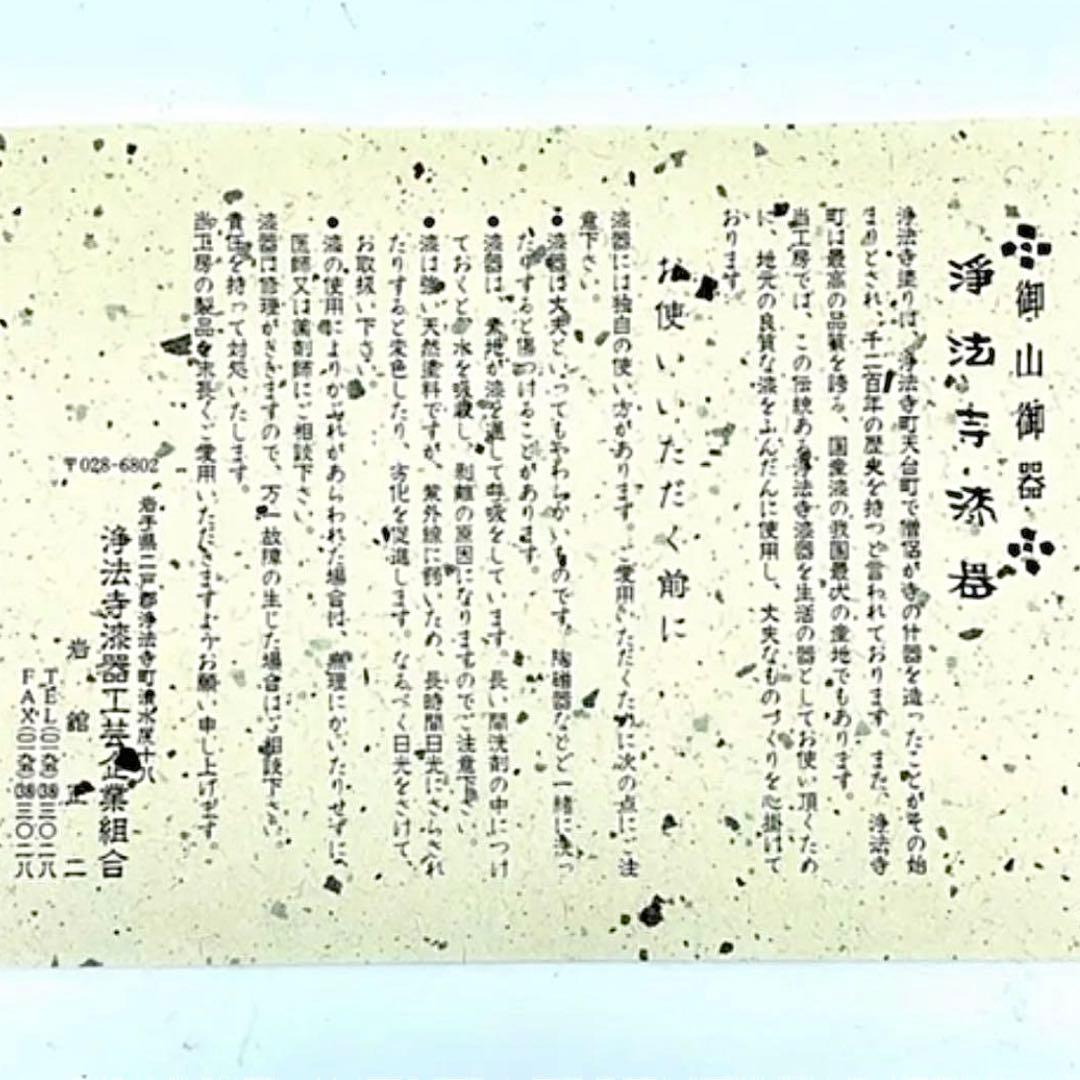 御山御器
浄法寺漆器
浄法寺塗りは、浄法寺町天台町で僧侶が寺の什器を造ったことがその始
まりとされ、千二百年の歴史を持つと言われております。また、浄法寺
町は最高の品質を誇る、国産漆の我国最大の産地でもあります。
当工房では、この伝統ある浄法寺漆器を生活の器としてお使い頂くため
に、地元の良質な漆をふんだんに使用し、大夫なものづくりを心掛けて
おります。
お使いいただく前に
漆器には独自の使い方があります。ご愛用いただくために次の点にご注
意下さい。
●漆器は大夫といってもやわらかいものです。陶磁器などと一緒に洗っ
たりすると傷つけることがあります。
●漆器は、木地が漆を通して呼吸をしています。長い間洗剤の中につけ
ておくと、水を吸収し、剥離の原因になりますのでご注意下さい。
●漆は強い天然塗料ですが、紫外線に弱いため、長時間日光にさらされ
たりすると変色したり、劣化を促進します。なるべく日光をさけて、
お取扱い下さい。
●漆の使用によりかぶれがあらわれた場合は、無理にかいたりせずに
医師又は薬剤師にご相談下さい。
漆器は修理がききますので、万一故障の生じた場合はご相談下さい。
責任を持って対処いたします。
当工房の製品を末長くご愛用いただきますようお願い申し上げます。
〒028-6802
岩手県二戸郡浄法寺町清水尻十八
浄法寺漆器工芸企業組合
岩舘正二
TEL(〇一九五)38三〇二八
FAX(〇一九五)38三〇二八